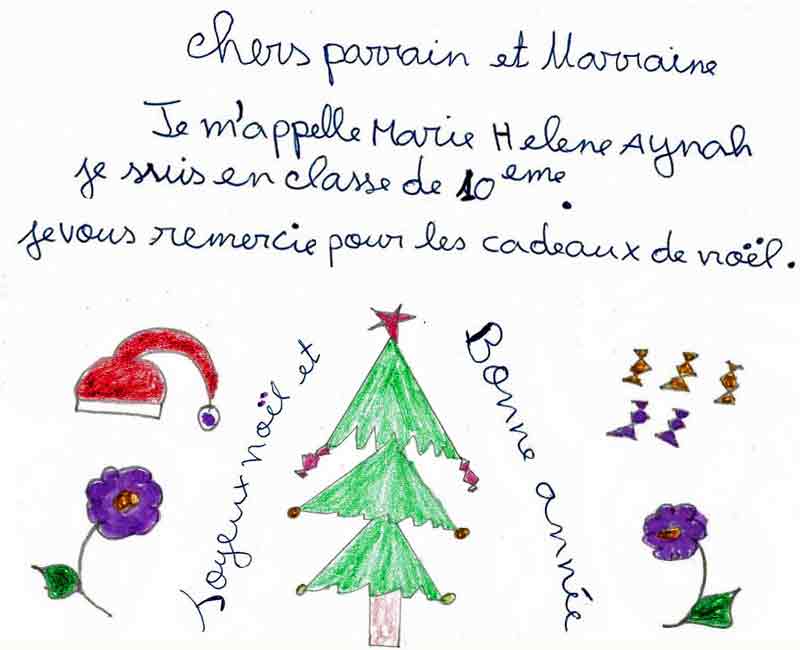 chers parrain et Marraine
Je m'appelle Marie Helene Aynah
je suis en classe de 10eme.
je vous remercie pour les cadeaux de noël.
Joyeux noël et
Bonne année